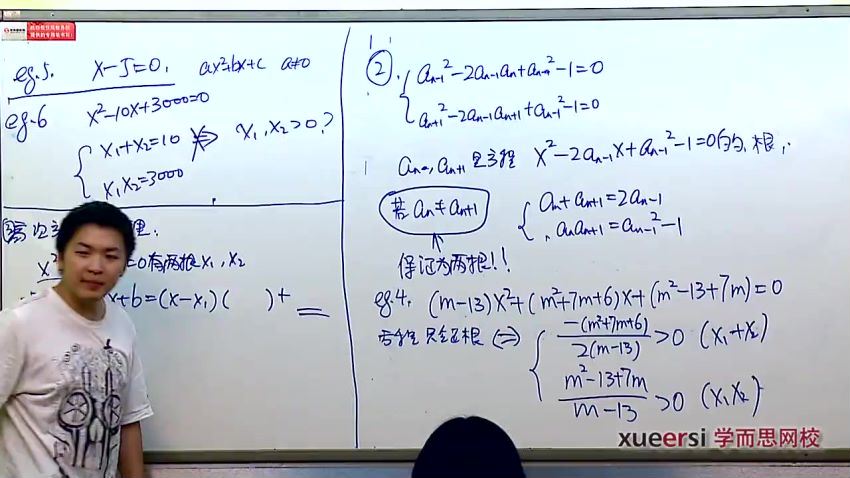 eg.5. x-5=0. ax²+bx+c a≠0
eg.6 x²-10x+3000=0
{ x₁+x₂=10
x₁x₂=3000
x₁,x₂>0?
=0有两根x₁,x₂
x+b=(x-x₁)( )+
②. { aₙ₋₁²-2aₙ₋₁aₙ+aₙ²-1=0
aₙ₊₁²-2aₙ₋₁aₙ₊₁+aₙ₋₁²-1=0
是方程 x²-2aₙ₋₁x+aₙ₋₁²-1=0的根,
若aₙ≠aₙ₊₁
{ aₙ+aₙ₊₁=2aₙ₋₁
aₙaₙ₊₁=aₙ₋₁²-1
保证为两根!!
eg.4. (m-13)x²+(m²+7m+6)x+(m²-13+7m)=0
方程只有正根 ⇔ { -(m²+7m+6)/2(m-13)>0 (x₁+x₂)
m²-13+7m/m-13>0 (x₁x₂)
xueersi 学而思网校